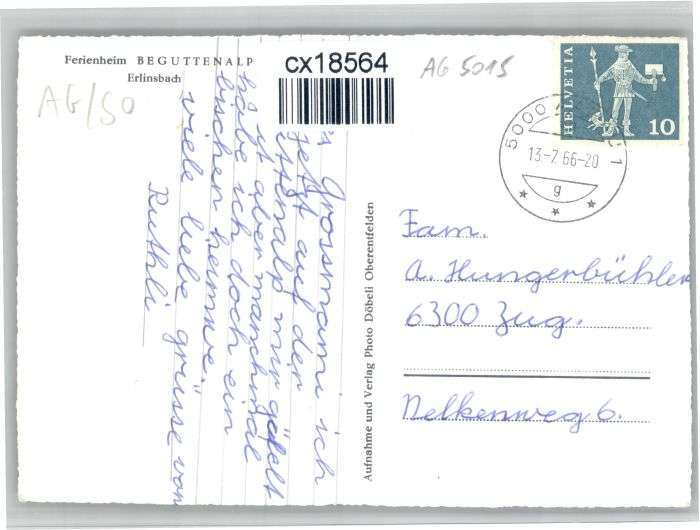 Ferienheim BEGUTTENALP
Erlinsbach
cx18564
AG 5015
AG/SO
HELVETIA
10
5000
1
13-7.66-20
g
Grossmami ich
jetzt auf der
mir gefelt
s aber manchmal
habe ich doch ein
bischen heimwe.
viele liebe grüsse von
Ruthli
Aufnahme und Verlag Photo Döbeli Oberentfelden
Fam.
A. Hungerbühler
6300 Zug.
Nelkenweg 6.